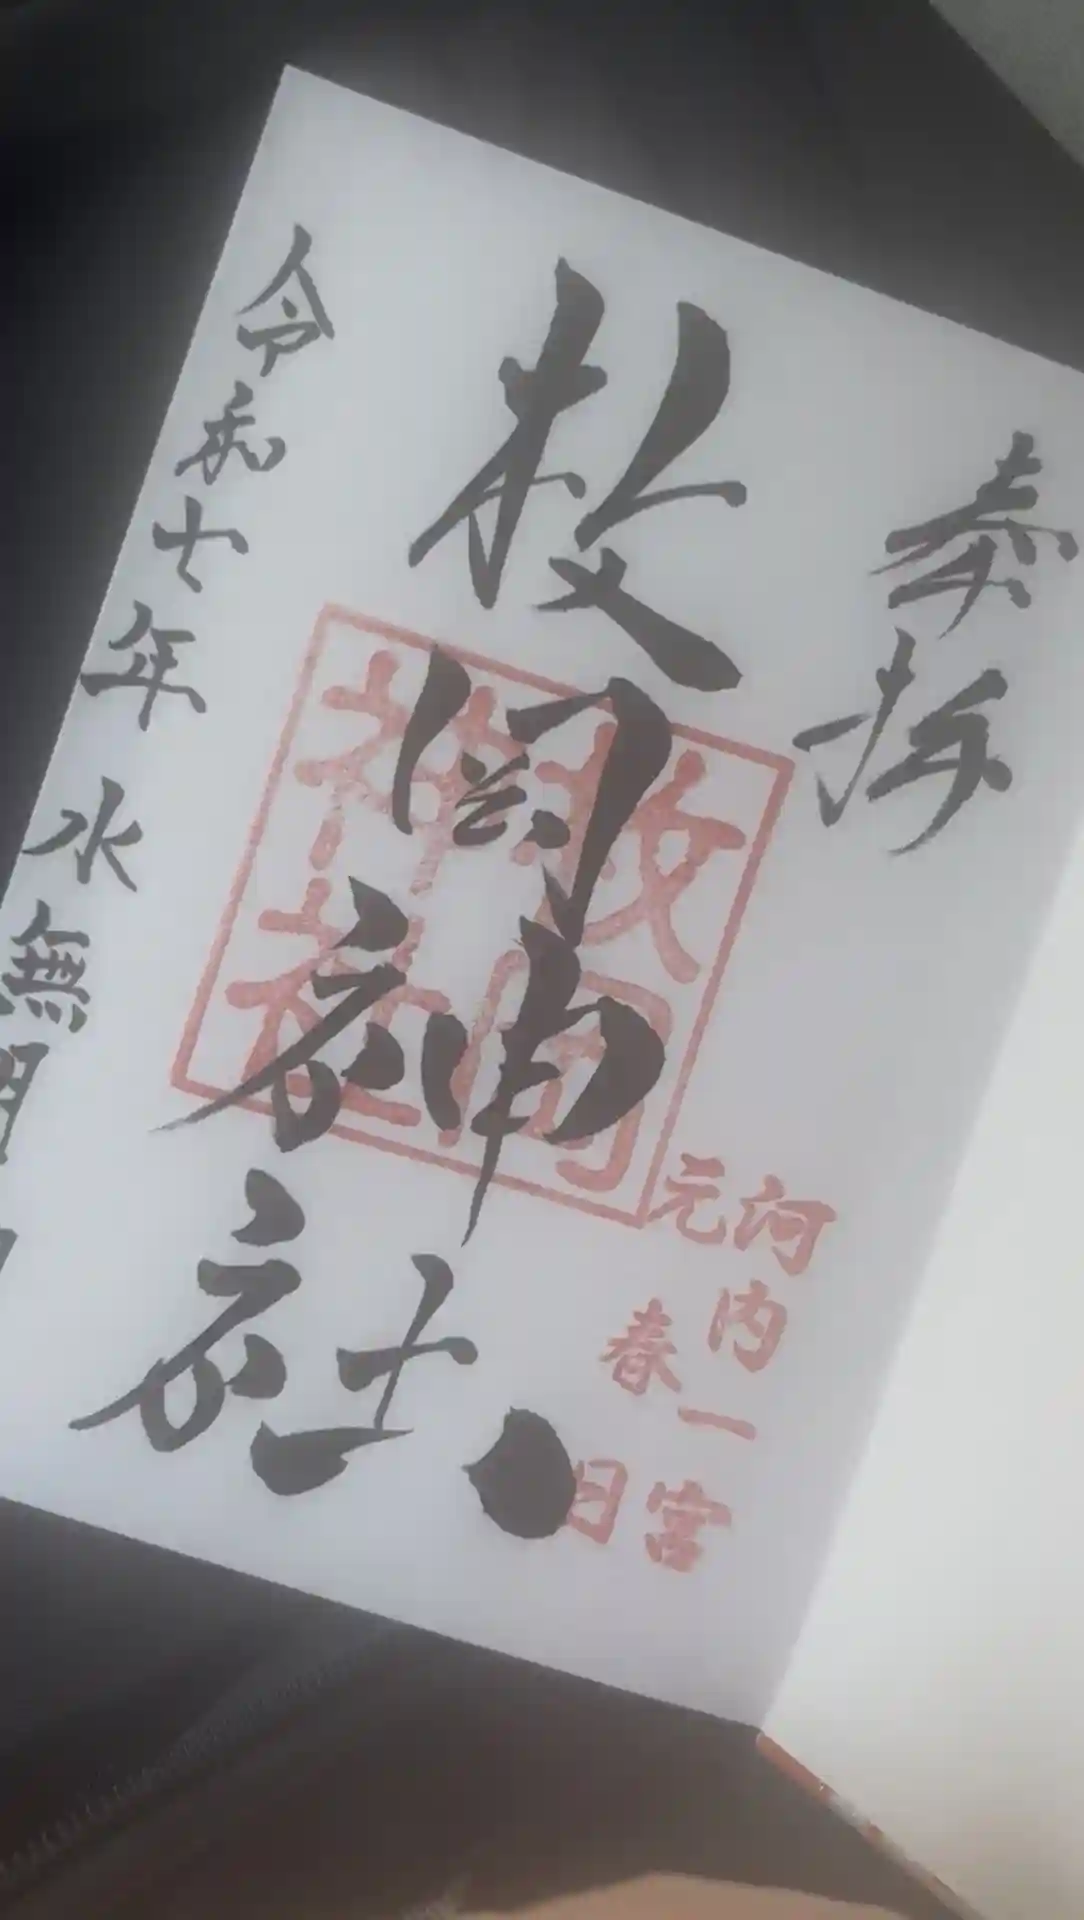 奉拝
枚岡神社
枚岡
神社
河内一宮
元春日
令和七年水無月